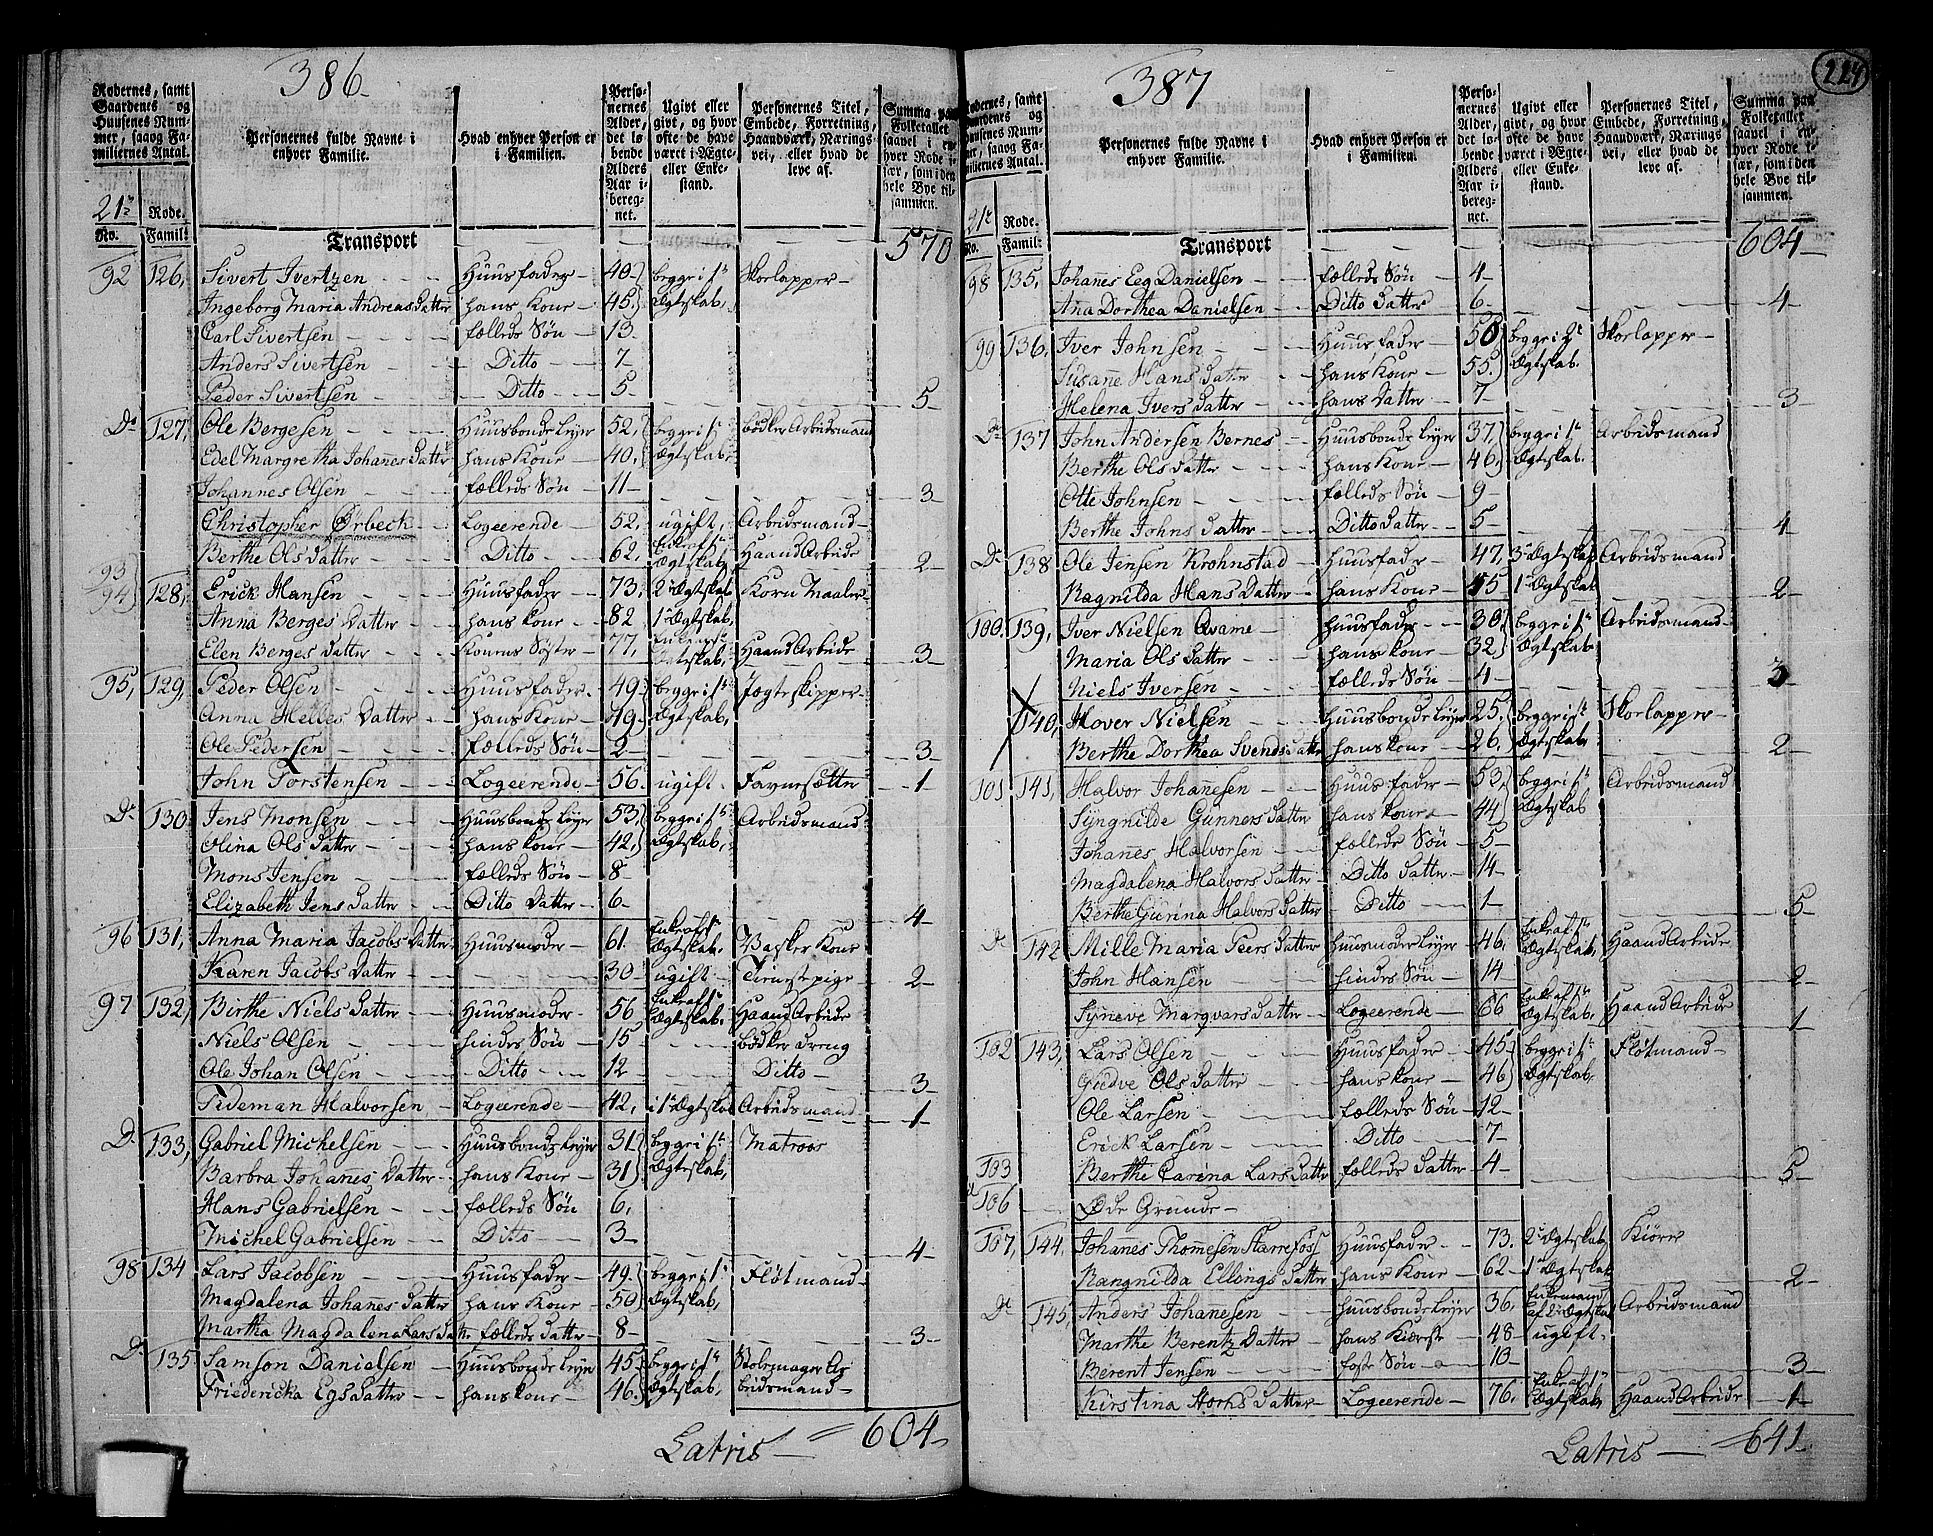 386
Rodernes, samt Gaardenes og Huusenes Nummer, saavog Familiernes Antal.
Personernes fulde Navne i enhver Familie.
Hvad enhver Person er i Familien.
Personernes Alder, det løbende Alders Aar iberegnet.
Ugivt eller givt, og hvor ofte de have været i Ægte- eller Enkestand.
Personernes Titel, Embede, Forretning, Haandværk, Næringsvei, eller hvad de leve af.
Summa paa Folketallet saavel i enhver Rode især, som i den hele Bye tilsammen.
21de Rode.
No. Famil:
Transport 570
92 126, Sivert Ivertzen Huusfader 40 begge i 1te Skorlapper
Ingeborg Maria Andreas Datter hans Kone 45 Ægtskab,
Carl Sivertsen fælleds Søn 13
Anders Sivertsen Ditto 7
Peder Sivertsen Ditto 5 5
Do 127, Ole Bergesen Huusbonde Lejer 52, begge i 1te bødker Arbeidsmand
Edel Margretha Johannes Datter hans Kone 40, Ægtskab
Johannes Olsen fælleds Søn 11 3
Christopher Ørbech Logeerende 52, ugift, Arbeidsmand
Berthe Ols Datter Ditto 62, Enke af 1te Ægtskab, Haand Arbeide 2
93 94 128, Erick Hansen Huusfader 73, 2det Ægtskab Korn Maaler
Anna Berges Datter hans Kone 82 1te Ægtskab,
Elen Berges Datter Konens Søster 77, Enke af 1te Ægtskab, Haand Arbeide 3
95, 129, Peder Olsen Huusfader 49 begge i 1te Jægteskipper
Anna Helles Datter hans Kone 49 Ægtskab,
Ole Pedersen fælleds Søn 2 3
John Torstensen Logeerende 56. ugift. Favnesætter 1
Do 130 Jens Monsen Huusbonde Lejer 53, begge i 1te Arbeidsmand
Olina Ols Datter hans Kone 42, Ægtskab,
Mons Jensen fælleds Søn 8
Elizabeth Jens Datter Ditto Datter 6 4
96 131, Anna Maria Jacobs Datter Huusmoder 61. Enke af 1te Ægtskab. Vasker Kone
Karen Jacobs Datter 30 ugift Tienestpige 2
97 132, Birthe Niels Datter Huusmoder 56 Enke af 1te Ægtskab. Haand Arbeide
Niels Olsen hendes Søn 15 bødker dreng
Ole Johan Olsen Ditto 12 Ditto 3
Tideman Halvorsen Logeerende 42, i 1te Ægtskab Arbeidsmand 1
Do 133, Gabriel Michelsen Huusbonde Lejer 31 begge i 1te Matroos
Barbra Johannes Datter hans Kone 31 Ægtskab,
Hans Gabrielsen fælleds Søn 6,
Michel Gabrielsen Ditto 3 4
98 134 Lars Jacobsen Huusfader 49 begge i 1te Flötmand
Magdalena Johannes Datter hans Kone 50 Ægtskab,
Martha Magdalena Lars Datter fælleds Datter 8 3
Do 135 Samson Danielsen Huusbonde Lejer 45 begge i 1te Stolemager Ar
Friedericka Egs Datter hans Kone 46 Ægtskab, beidsmand
Latris 604
387
224
Rodernes, samt Gaardenes og Huusenes Nummer, saavog Familiernes Antal.
Personernes fulde Navne i enhver Familie.
Hvad enhver Person er i Familien.
Personernes Alder, det løbende Alders Aar iberegnet.
Ugivt eller givt, og hvor ofte de have været i Ægte- eller Enkestand.
Personernes Titel, Embede, Forretning, Haandværk, Næringsvei, eller hvad de leve af.
Summa paa Folketallet saavel i enhver Rode især, som i den hele Bye tilsammen.
21de Rode.
No. Famil:
Transport 604
98 135, Johannes Eeg Danielsen fælleds Søn 4
Ana Dorthea Danielsen Ditto Datter 6 4
99 136, Iver Johnsen Huusfader 50 begge i 2det Skorlapper
Susanne Hans Datter hans Kone 55. Ægtskab.
Helena Ivers Datter hans Datter 7 3
Do 137 John Andersen Bernes Huusbonde Lejer 37, begge i 1te Arbeidsmand
Berthe Ols Datter hans Kone 46, Ægtskab.
Otte Johnsen fælleds Søn 9
Berthe Johns Datter Ditto Datter 5 4
Do 138 Ole Jensen Krohnstad huusfader 47, 3die Ægtskab Arbeidsmand
Ragnilda Hans Datter hans Kone 45 1te Ægtskab. 2
100 139, Iver Nielsen Qvame huusfader 30, begge i 1te Arbeidsmand
Maria Ols Datter hans Kone 32 Ægtskab
Niels Iversen fælleds Søn 4 3
140, Hover Nielsen huusbonde Lejer 25. begge i 1te Skorlapper
Berthe Dorthea Svends Datter hans kone 26, Ægtskab 2
101 141, Halvor Johannesen Huusfader 53, begge i 1te Arbeidsmand
Syngnilde Gunners Datter hans kone 44 Ægtskab
Johannes Halvorsen fælleds Søn 5
Magdalena Halvors Datter Ditto Datter 14
Berthe Gurina Halvors Datter Ditto 1 5
Do 142 Mille Maria Peers Datter huusmoder Lejer 46, Enke af 1te Ægtskab, Haand Arbeide
John Hansen hindes Søn 14 2
Syneve Marqvars Datter Logeerende 66 Enke af 1te Ægtskab, Haand Arbeide 1
102 143, Lars Olsen Huusfader 45 begge i 1te Flötmand
Giedve Ols Datter hans kone 46 Ægtskab,
Ole Larsen fælleds Søn 12
Erick Larsen Ditto 7
103 Berthe Carina Lars Datter fælleds Datter 4 5
a 106 Øde Grunde
107, 144, Johannes Thomesen Starrefoss Huusfader 73. 2det Ægtskab, Kiører
Rangnilda Ellings Datter hans Kone 62 1te Ægtskab 2
Do 145, Anders Johanesen huusbonde Lejer 36, Enkemand af 2det Ægtskab Arbeidsmand
Marthe Berentz Datter hans Kiereste 48 ugift.
Berent Jensen foster Søn 10 3
Kirstina Horks Datter Logeerende 76, Enke af 1te Ægtskab Haand Arbeide 1
Latris 641